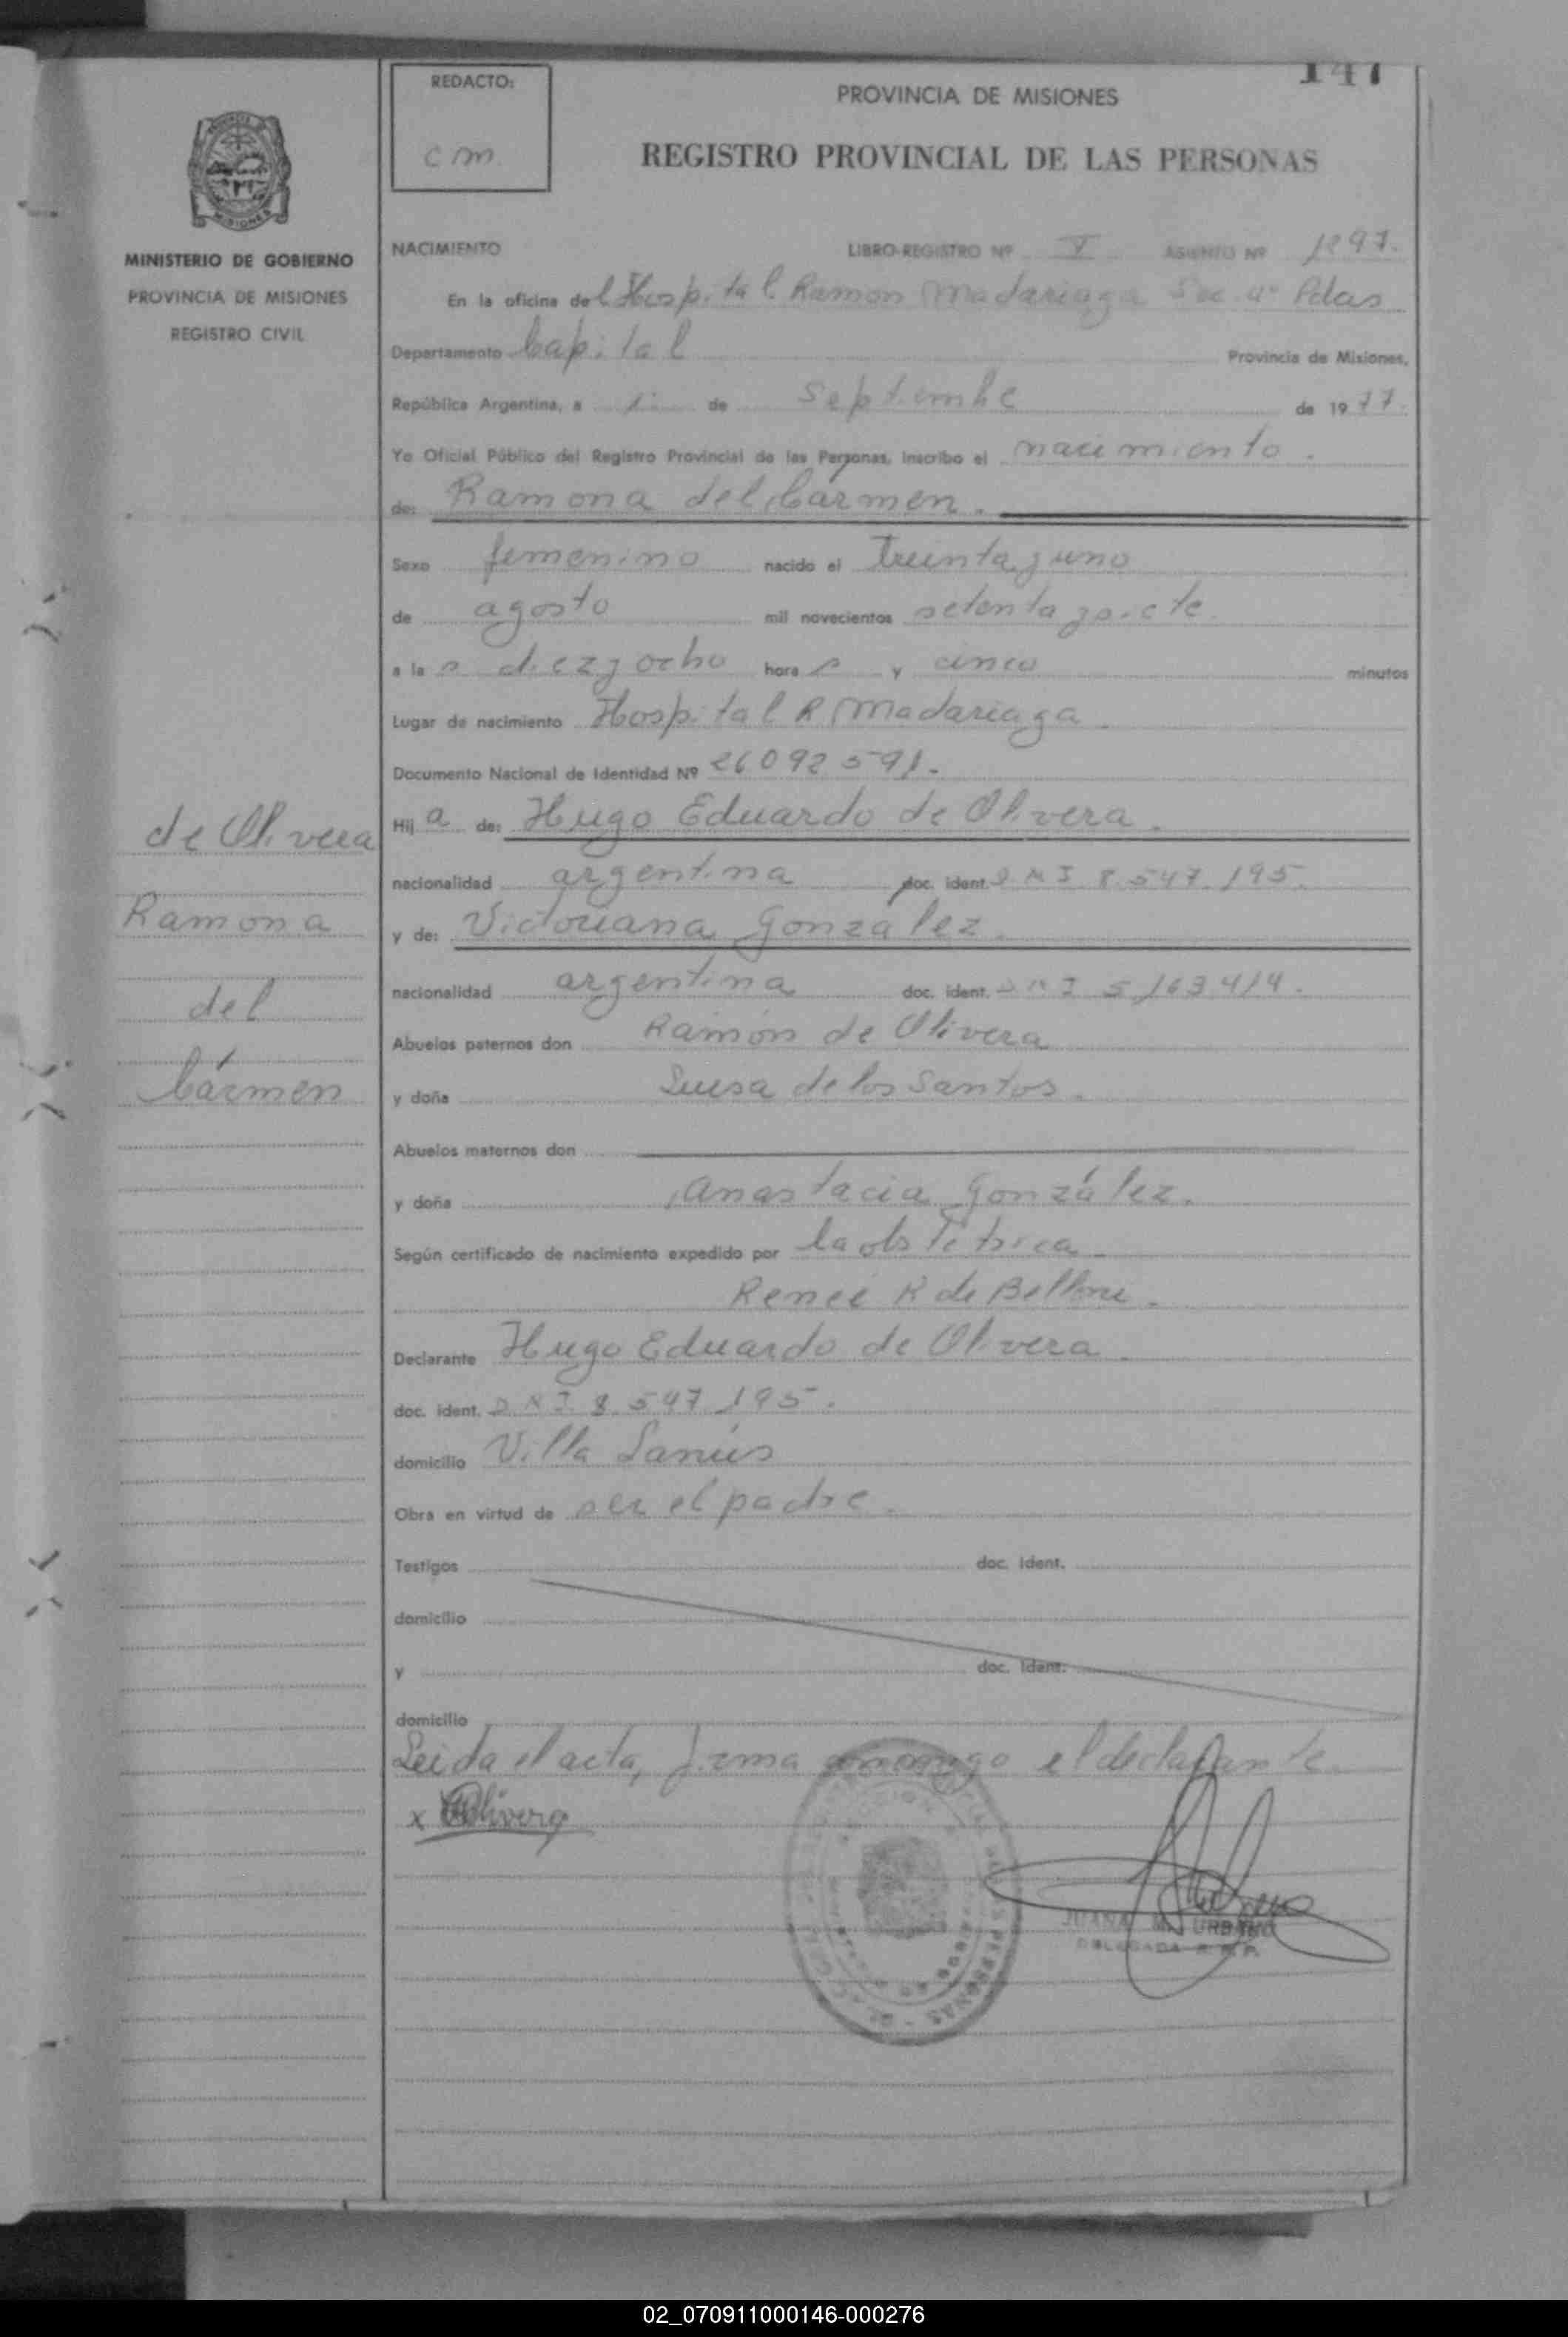 147
REDACTO:
cm.
PROVINCIA DE MISIONES
REGISTRO PROVINCIAL DE LAS PERSONAS
MISIONES
MINISTERIO DE GOBIERNO
PROVINCIA DE MISIONES
REGISTRO CIVIL
NACIMIENTO LIBRO-REGISTRO Nº V ASIENTO Nº 1297.
En la oficina del Hospital Ramon Madariaga Sec. 4º Pdas
Departamento Capital Provincia de Misiones,
República Argentina, a 1º de septiembre de 1977.
Yo Oficial Público del Registro Provincial de las Personas, inscribo el nacimiento.
de: Ramona del Cármen.
Sexo femenino nacido el treinta y uno
de agosto mil novecientos setenta y siete.
a la s diez y ocho hora s y cinco minutos
Lugar de nacimiento Hospital R Madariaga.
Documento Nacional de Identidad Nº 26092591.
Hij a de: Hugo Eduardo de Olivera.
nacionalidad argentina doc. ident. D N I 8.547.195.
y de: Victoriana Gonzalez.
nacionalidad argentina doc. ident. D N I 5163414.
Abuelos paternos don Ramón de Olivera
y doña Luisa de los Santos.
Abuelos maternos don
y doña Anastacia González.
Según certificado de nacimiento expedido por la obstetrica
Reneé R de Bellone.
Declarante Hugo Eduardo de Olivera.
doc. ident. D.N.I. 8.547.195.
domicilio Villa Lanús
Obra en virtud de ser el padre.
Testigos doc. Ident.
domicilio
y doc. Ident.
domicilio
Leida el acta, firma conmigo el declarante.
x Olivera
JUANA M. URBANO
DELEGADA R. P. P.
de Olivera
Ramona
del
Cármen
02_070911000146-000276